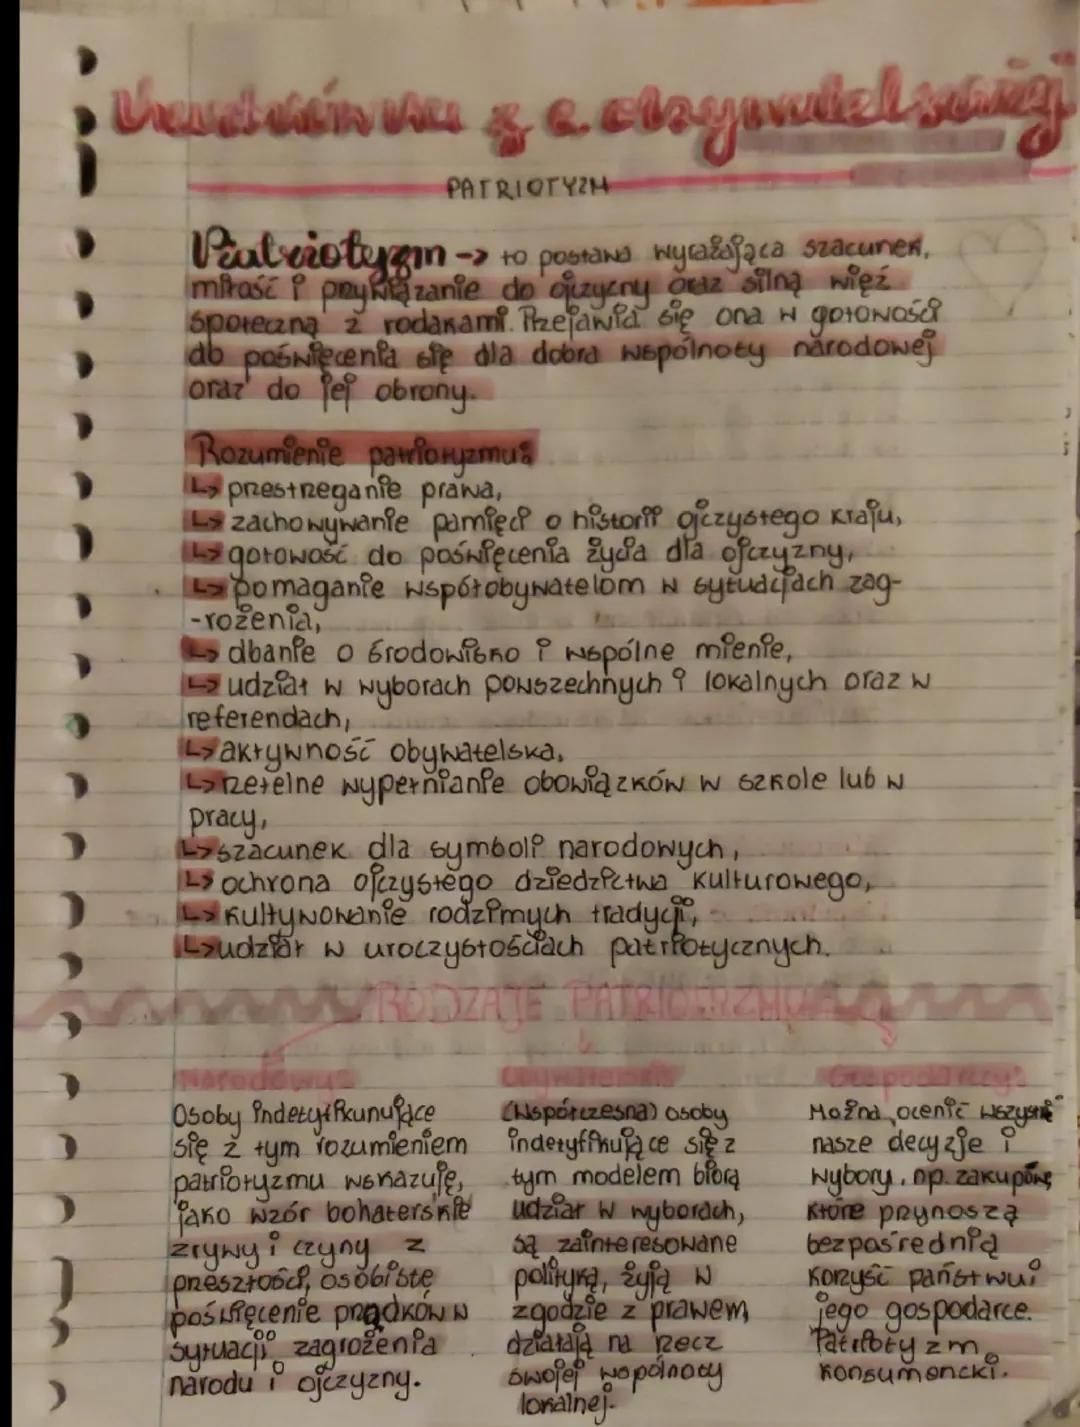 PATRIOTYZM
Patriotyzm -> to postawa wyrażająca szacunek,
miłość i przywiązanie do ojczyzny oraz silną więź
społeczną z rodakami. Przejawia się ona w gotowości
do poświęcenia się dla dobra wspólnoty narodowej
oraz do jej obrony.
Rozumienie patriotyzmu:
↳ przestrzeganie prawa,
↳ zachowywanie pamięci o historii ojczystego kraju,
↳ gotowość do poświęcenia życia dla ojczyzny,
↳ pomaganie współobywatelom w sytuacjach zag-
-rożenia,
↳ dbanie o środowisko i wspólne mienie,
↳ udział w wyborach powszechnych i lokalnych oraz w
referendach,
↳ aktywność obywatelska,
↳ rzetelne wypełnianie obowiązków w szkole lub w
pracy,
↳ szacunek dla symboli narodowych,
↳ ochrona ojczystego dziedzictwa kulturowego,
↳ kultywowanie rodzimych tradycji,
↳ udział w uroczystościach patriotycznych.
RODZAJE PATRIOTYZMU
Narodowy:
Osoby indetyfikunujące
się z tym rozumieniem
patriotyzmu wskazuję,
jako wzór bohaterskie
zrywy i czyny z
przeszłości, osobiste
poświęcenie przodków w
sytuacji zagrożenia
narodu i ojczyzny.
Obywatelski
(współczesna) osoby
indetyfikujące się z
tym modelem biorą
udział w wyborach,
są zainteresowane
polityką, żyją w
zgodzie z prawem,
działają na rzecz
swojej wspólnoty
lokalnej.
Gospodarczy:
Można ocenić wszystkie
nasze decyzje i
wybory, np. zakupowe,
które przynoszą
bezpośrednią
korzyść państwu i
jego gospodarce.
Patriotyzm
konsumencki.